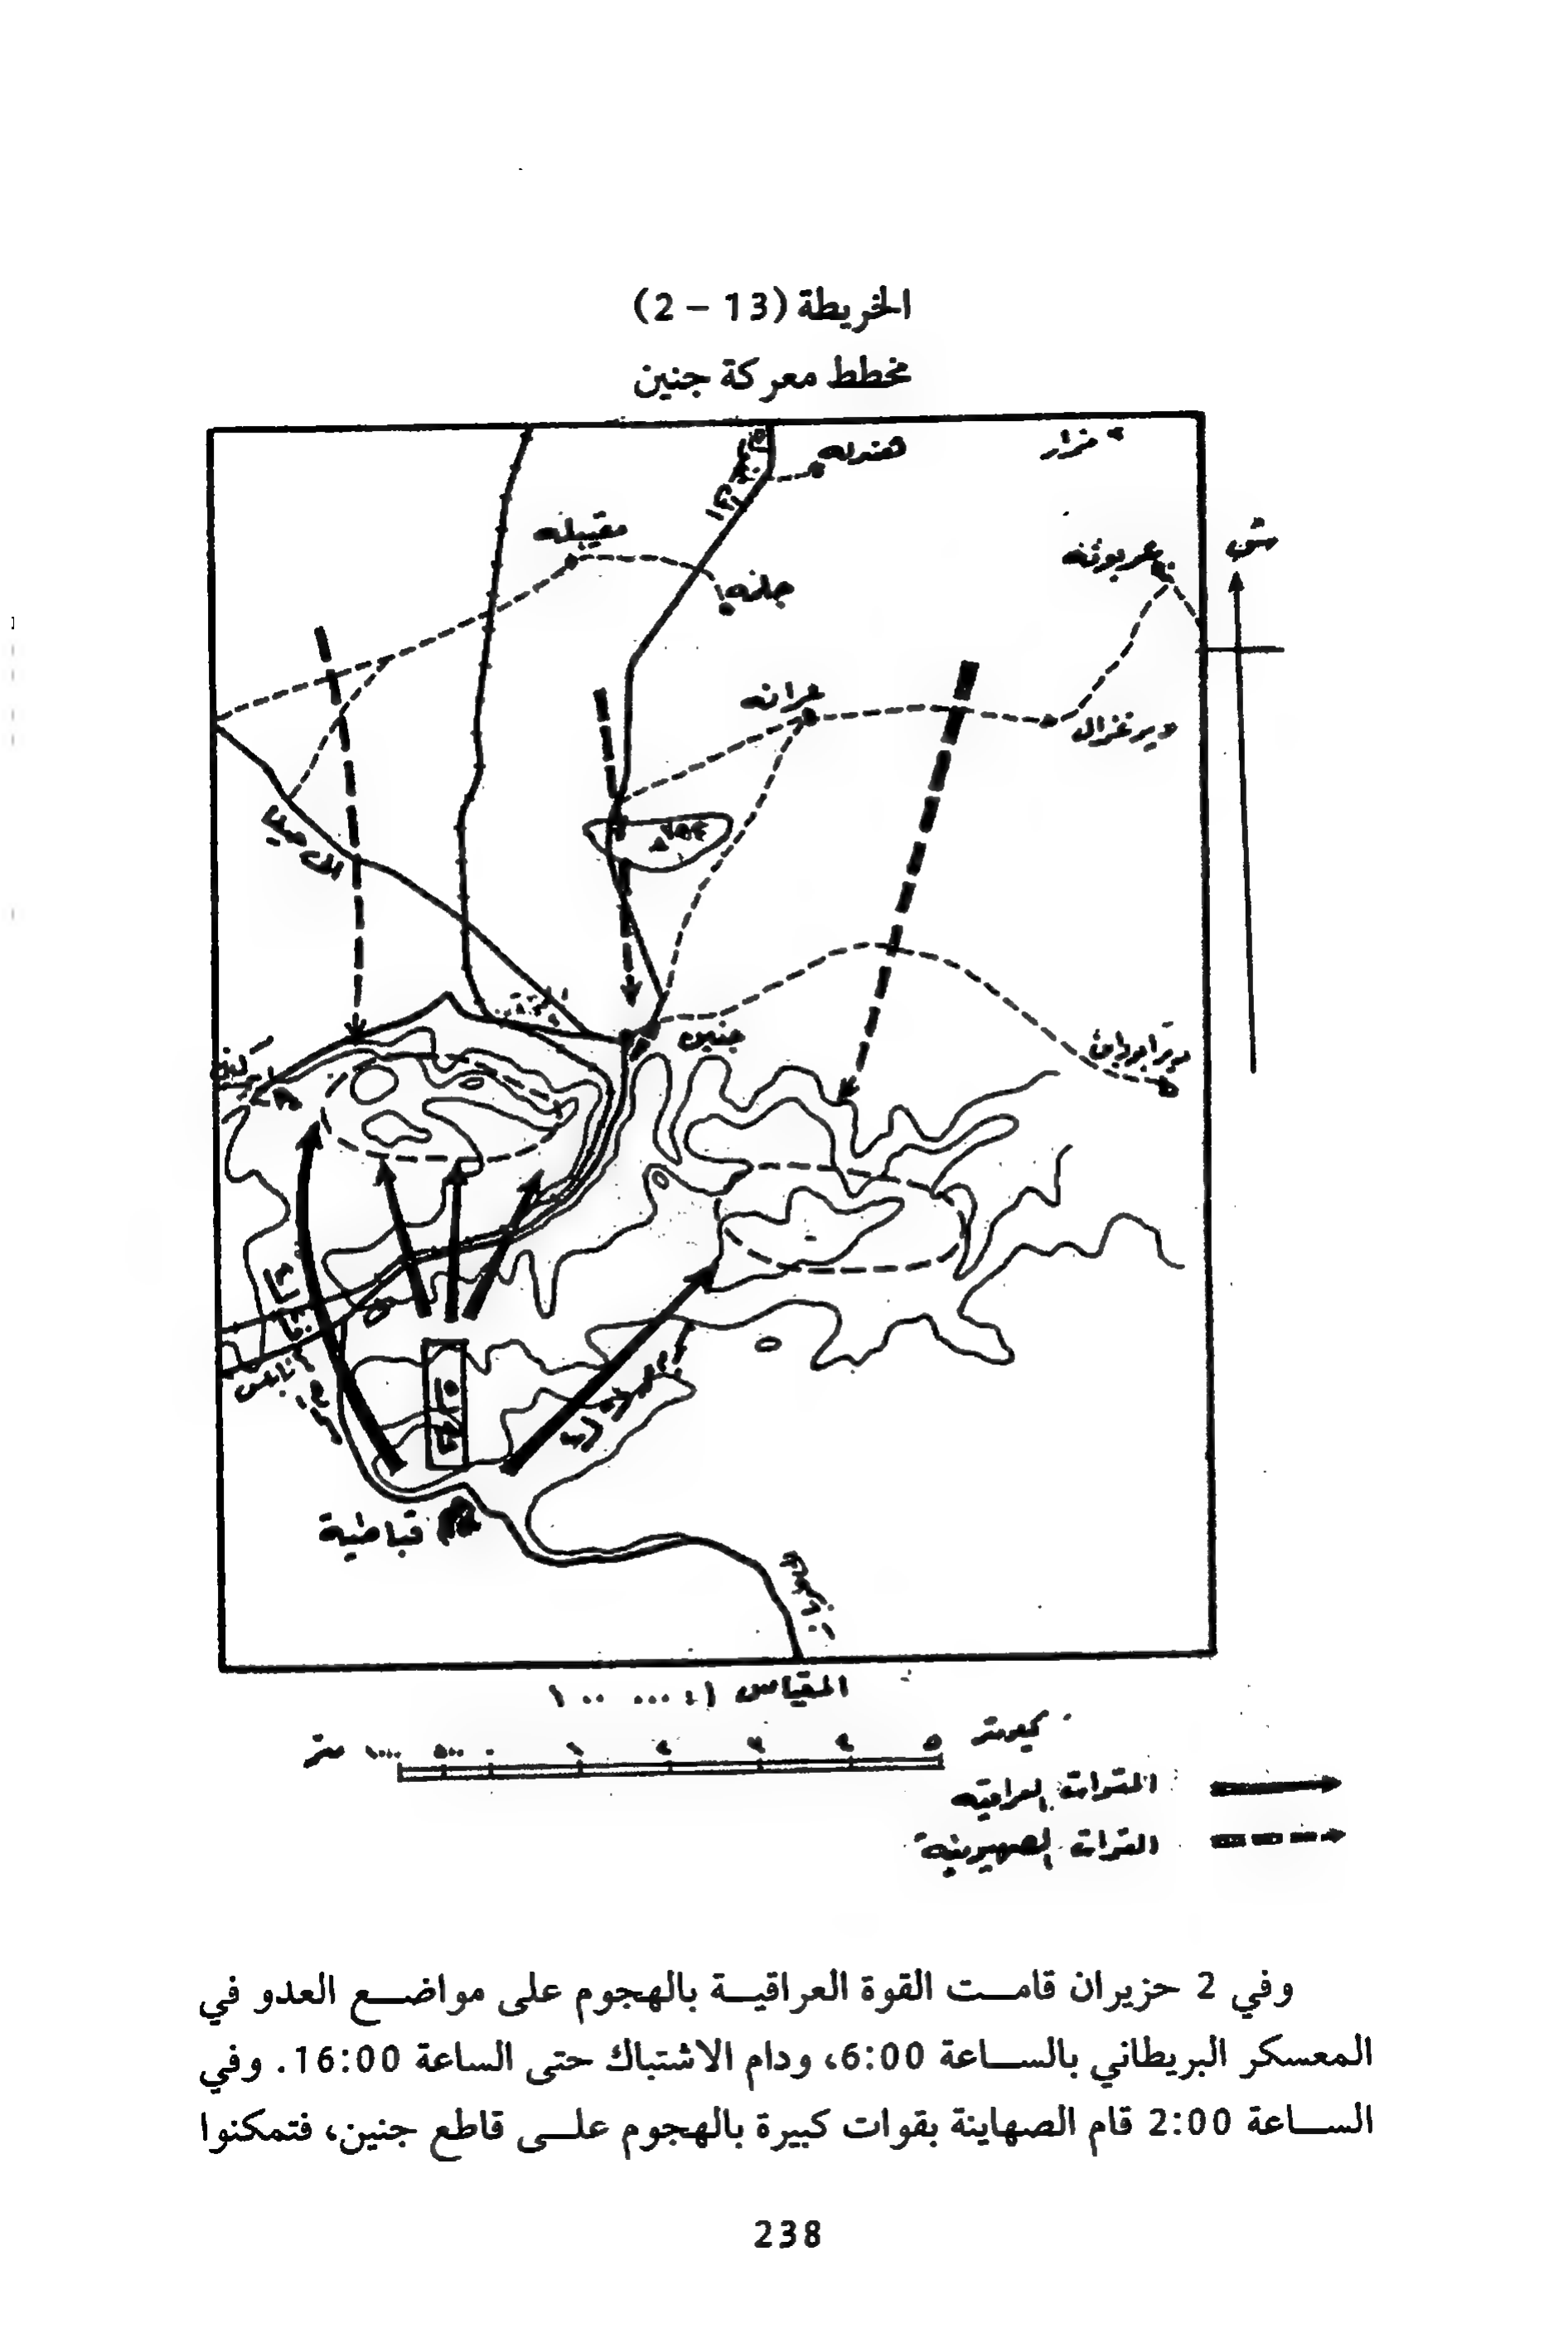 الخريطة (13 – 2)
مخطط معركة جنين
مزار
مقيبله
جلمه
عربونه
ش
عرانه
دير غزال
جنين
نابلس
قباطية
المقياس ١: ١٠٠٠٠٠
كيلومتر
متر ١٠٠٠ ٥٠٠ ٠ ١ ٢ ٣ ٤ ٥
القوات العراقيه
القوات الصهيونية
وفي 2 حزيران قامت القوة العراقية بالهجوم على مواضع العدو في
المعسكر البريطاني بالساعة 6:00، ودام الاشتباك حتى الساعة 16:00. وفي
الساعة 2:00 قام الصهاينة بقوات كبيرة بالهجوم على قاطع جنين، فتمكنوا
238